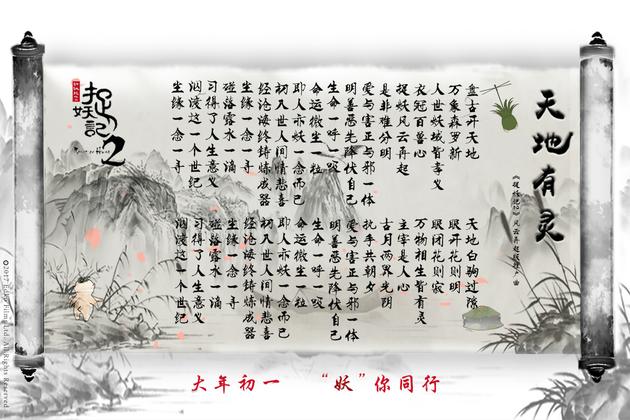 天地有灵
盘古开天地
万象森罗新
人世妖域皆孝义
衣冠百兽心
捉妖风云再起
是非难分明
爱与害正与邪一体
明善恶先降伏自己
生命一呼一吸
命运微尘一粒
即人亦妖一念而已
初入世人间情悲喜
经沧海终铸炼成器
尘缘一念一寻
碰落露水一滴
习得了人生意义
洇漫这一个世纪
尘缘一念一寻
天地白驹过隙
眼开花则明
眼闭花则寂
万物相生皆有灵
主宰是人心
古月两界光阴
执手共朝夕
爱与害正与邪一体
明善恶先降伏自己
生命一呼一吸
命运微尘一粒
即人亦妖一念而已
初入世人间情悲喜
经沧海终铸炼成器
尘缘一念一寻
碰落露水一滴
习得了人生意义
洇漫这一个世纪
捉妖記2
大年初一 “妖”你同行